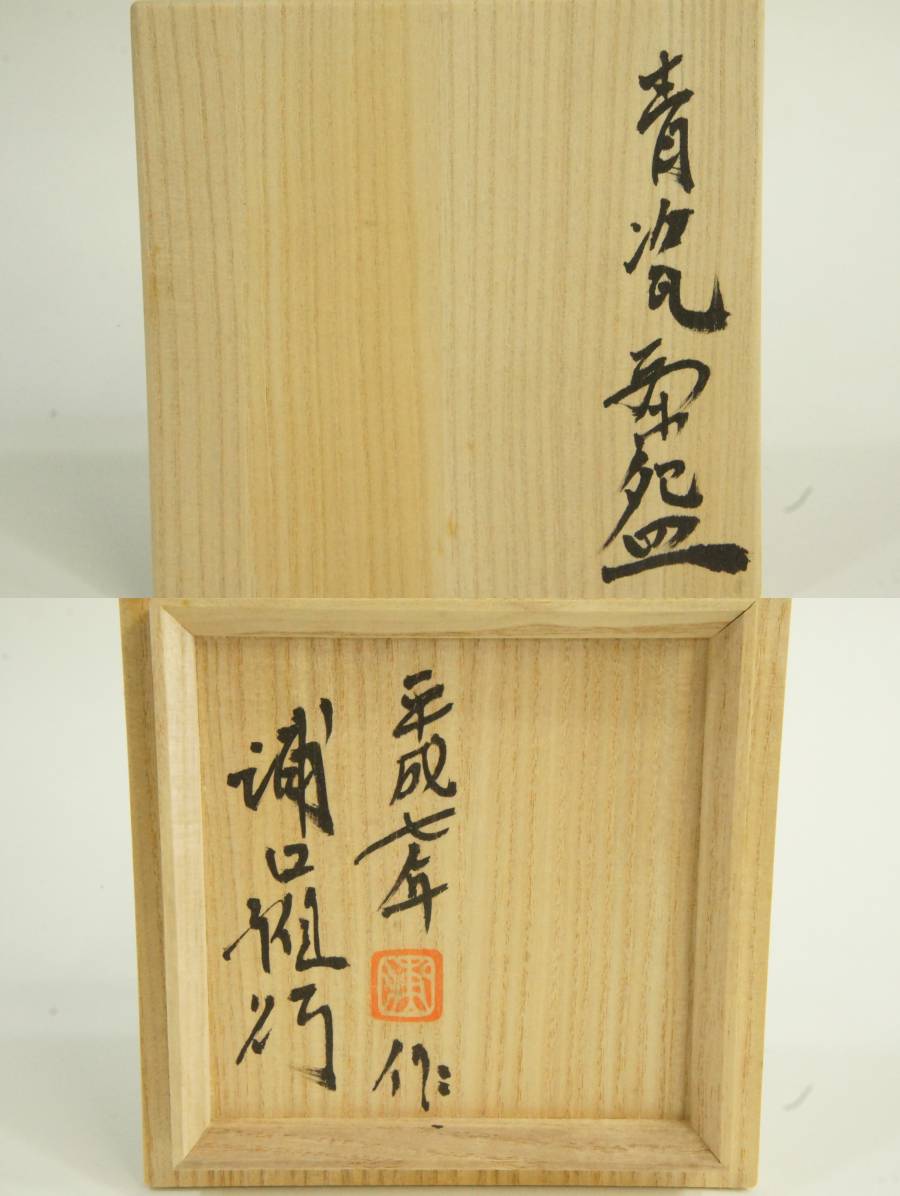 青瓷茶盌
平成七年
作
浦口雅行